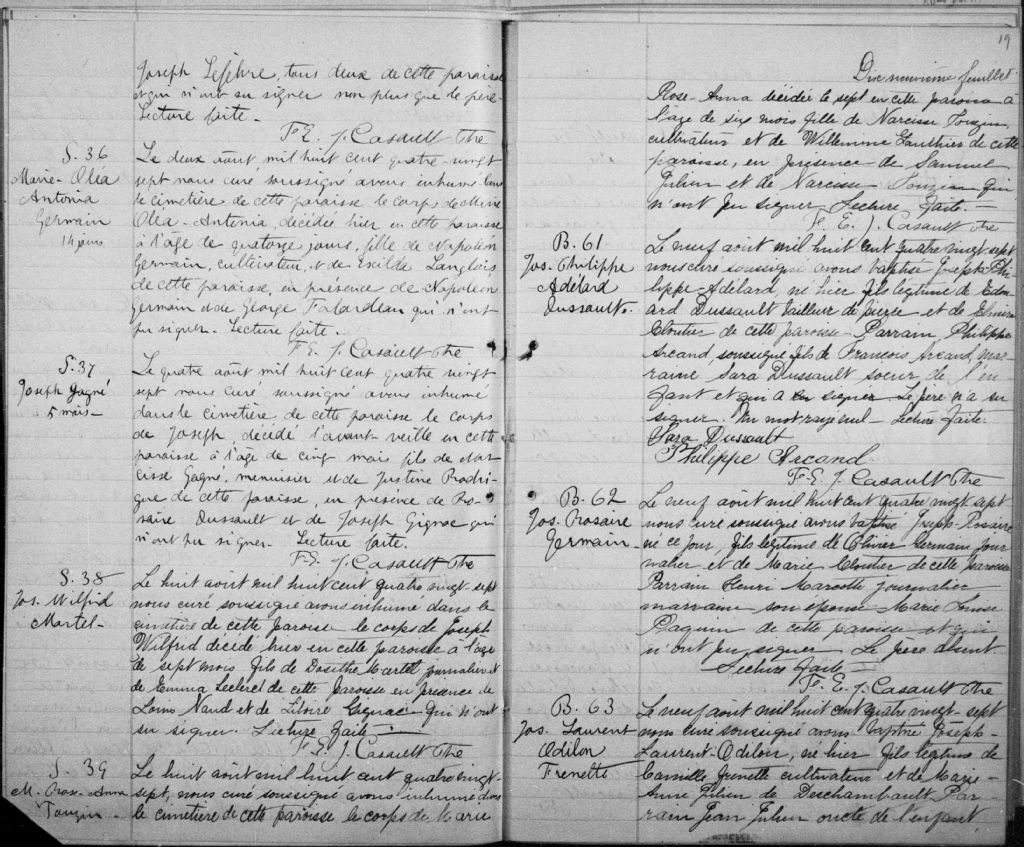 Joseph Lefebvre, tous deux de cette paroisse
et qui n'ont su signer non plus que le père
Lecture faite. -
F. E. J. Casault Ptre
S. 36
Marie-Oléa
Antonia
Germain
14 jours
Le deux août mil huit cent quatre-vingt
sept nous curé soussigné avons inhumé dans
le cimetière de cette paroisse le corps de Marie
Oléa-Antonia, décédée hier en cette paroisse
à l'âge de quatorze jours, fille de Napoléon
Germain, cultivateur, et de Exilda Langlois
de cette paroisse, en présence de Napoléon
Germain et de George Falardeau qui n'ont
pu signer. Lecture faite.
F. E. J. Casault Ptre
S. 37
Joseph Gagné
5 mois -
Le quatre août mil huit cent quatre vingt
sept nous curé soussigné avons inhumé
dans le cimetière de cette paroisse le corps
de Joseph, décédé l'avant-veille en cette
paroisse à l'âge de cinq mois fils de Nar-
cisse Gagné, menuisier et de Justine Rodri-
gue de cette paroisse, en présence de Ro-
saire Dussault et de Joseph Gignac qui
n'ont pu signer. Lecture faite.
F. E. J. Casault Ptre
S. 38
Jos. Wilfrid
Martel -
Le huit août mil huit cent quatre vingt-sept
nous curé soussigné avons inhumé dans le
cimetière de cette paroisse le corps de Joseph
Wilfrid décédé hier en cette paroisse à l'âge
de sept mois fils de Dosithé Martel journalier et
de Emma Leclerc de cette paroisse en présence de
Louis Naud et de Gignac qui n'ont
su signer. Lecture faite -
F. E. J. Casault Ptre
S. 39
M. Rose-Anna
Touzin -
Le huit août mil huit cent quatre vingt-
sept, nous curé soussigné avons inhumé dans
le cimetière de cette paroisse le corps de Marie
19
Dix neuvième feuillet
Rose-Anna décédée le sept en cette paroisse à
l'âge de six mois fille de Narcisse Touzin,
cultivateur et de Willemine Gauthier de cette
paroisse, en présence de Samuel
Julien et de Narcisse Touzin qui
n'ont pu signer Lecture faite. -
F. E. J. Casault Ptre
B. 61
Jos. Philippe
Adélard
Dussault.
Le neuf août mil huit cent quatre vingt sept
nous curé soussigné avons baptisé Joseph-Phi-
lippe-Adélard, né hier fils légitime de Edou-
ard Dussault tailleur de pierre et de
Cloutier de cette paroisse. Parrain Philippe
Arcand soussigné fils de François Arcand, mar-
raine Sara Dussault soeur de l'en-
fant et qui a signer Le père n'a su
signer. Un mot rayé nul - Lecture faite.
Sara Dussault
Philippe Arcand
F. E. J. Casault Ptre
B. 62
Jos. Rosaire
Germain -
Le neuf août mil huit cent quatre vingt sept
nous curé soussigné avons baptisé Joseph-Rosaire
né ce jour, fils légitime de Olivier Germain jour-
nalier et de Marie Cloutier de cette paroisse
Parrain Henri Marcotte journalier
marraine son épouse Marie Louise
Paquin de cette paroisse et qui
n'ont pu signer Le père absent
Lecture faite -
F. E. J. Casault Ptre
B. 63
Jos. Laurent
Odilon
Frenette
Le neuf août mil huit cent quatre vingt-sept
nous curé soussigné avons baptisé Joseph-
Laurent-Odilon, né hier fils légitime de
Camille Frenette cultivateur et de Marie-
Anne Julien de Deschambault Par-
rain Jean Julien oncle de l'enfant